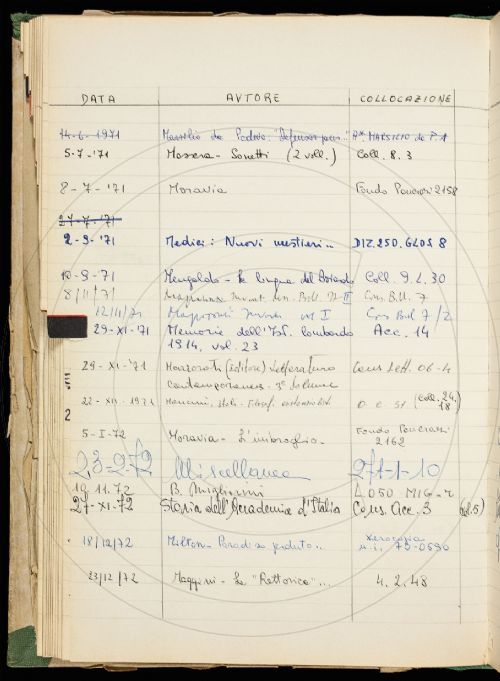 DATA AVTORE COLLOCAZIONE
14-6-1971 Marsilio da Padova: "Defensor pacis" MARSILIO da P. 1
5-7-'71 Massera - Sonetti (2 voll.) Coll. 8.3
8-7-'71 Moravia Fondo Pancrazi 2158
27-7-'71
2-9-'71 Medici: Nuovi mestieri.. DIZ.250.GLOS 8
10-9-71 Mengaldo - La lingua del Boiardo Coll. 9.L.30
8/11/71 II Cons. Bibl. 7
12/11/71 I Cons Bibl 7/2
29-XI-'71 Memorie dell'Ist. lombardo Acc. 14
1914, vol. 23
29-XI-'71 Marzorati (Editore) Letteratura Cons Lett. 06-4
contemporanea - 3° volume
22-XII-1971 Mancini, (Coll. 24.
18)
5-I-72 Moravia - L'imbroglio. Fondo Pancrazi
2162
23-2-72 Miscellanea 271-1-10
10.11.72 B. Migliorini L050 MIG-
27-XI-72 Storia dell'Accademia d'Italia Cons. Acc. 3
18/12/72 Milton - Paradiso perduto.. xerocopia
75-0690
23/12/72 Maggini - La "Rettorica"... 4.2.48